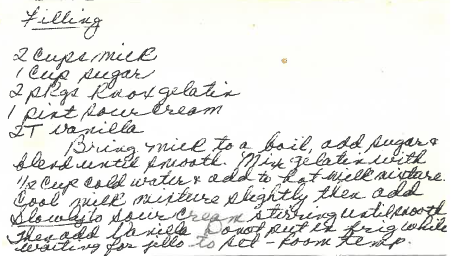 Filling
2 cups milk
1 cup sugar
2 pkgs Knox gelatin
1 pint sour cream
2T vanilla
Bring milk to a boil, add sugar &
blend until smooth. Mix gelatin with
1/2 cup cold water & add to hot milk mixture.
Cool milk mixture slightly then add
slowly to sour cream stirring until smooth
Then add vanilla Do not put in frig while
waiting for jello to set - room temp.